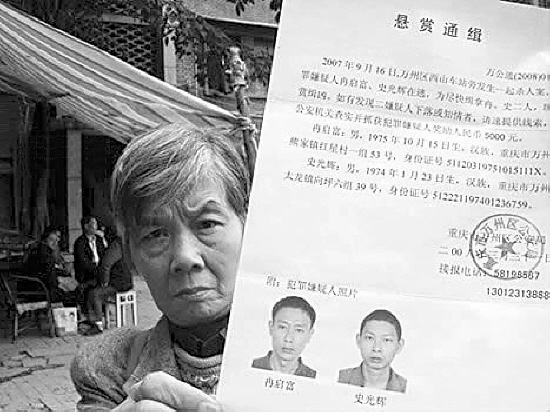 悬赏通缉
万公通(2008)
2007年9月16日,万州区西山东站旁发生一起杀人案,
罪嫌疑人冉启富、史光辉在逃,为尽快缉拿冉、史二人,
赏缉捕,如有发现二嫌疑人下落或知情者,请速提供线索,
公安机关查实并抓获犯罪嫌疑人奖励人民币5000元。
冉启富:男,1975年10月15日生,汉族,重庆市万州
熊家镇红星村一组53号,身份证号51120319751015111X。
史光辉:男,1974年1月23日生,汉族,重庆市万州
大龙镇向坪六组39号,身份证号512221197401236759。
重庆市万州区公安局
二00八年
接报电话:58198567
1301231388
附:犯罪嫌疑人照片
冉启富
史光辉